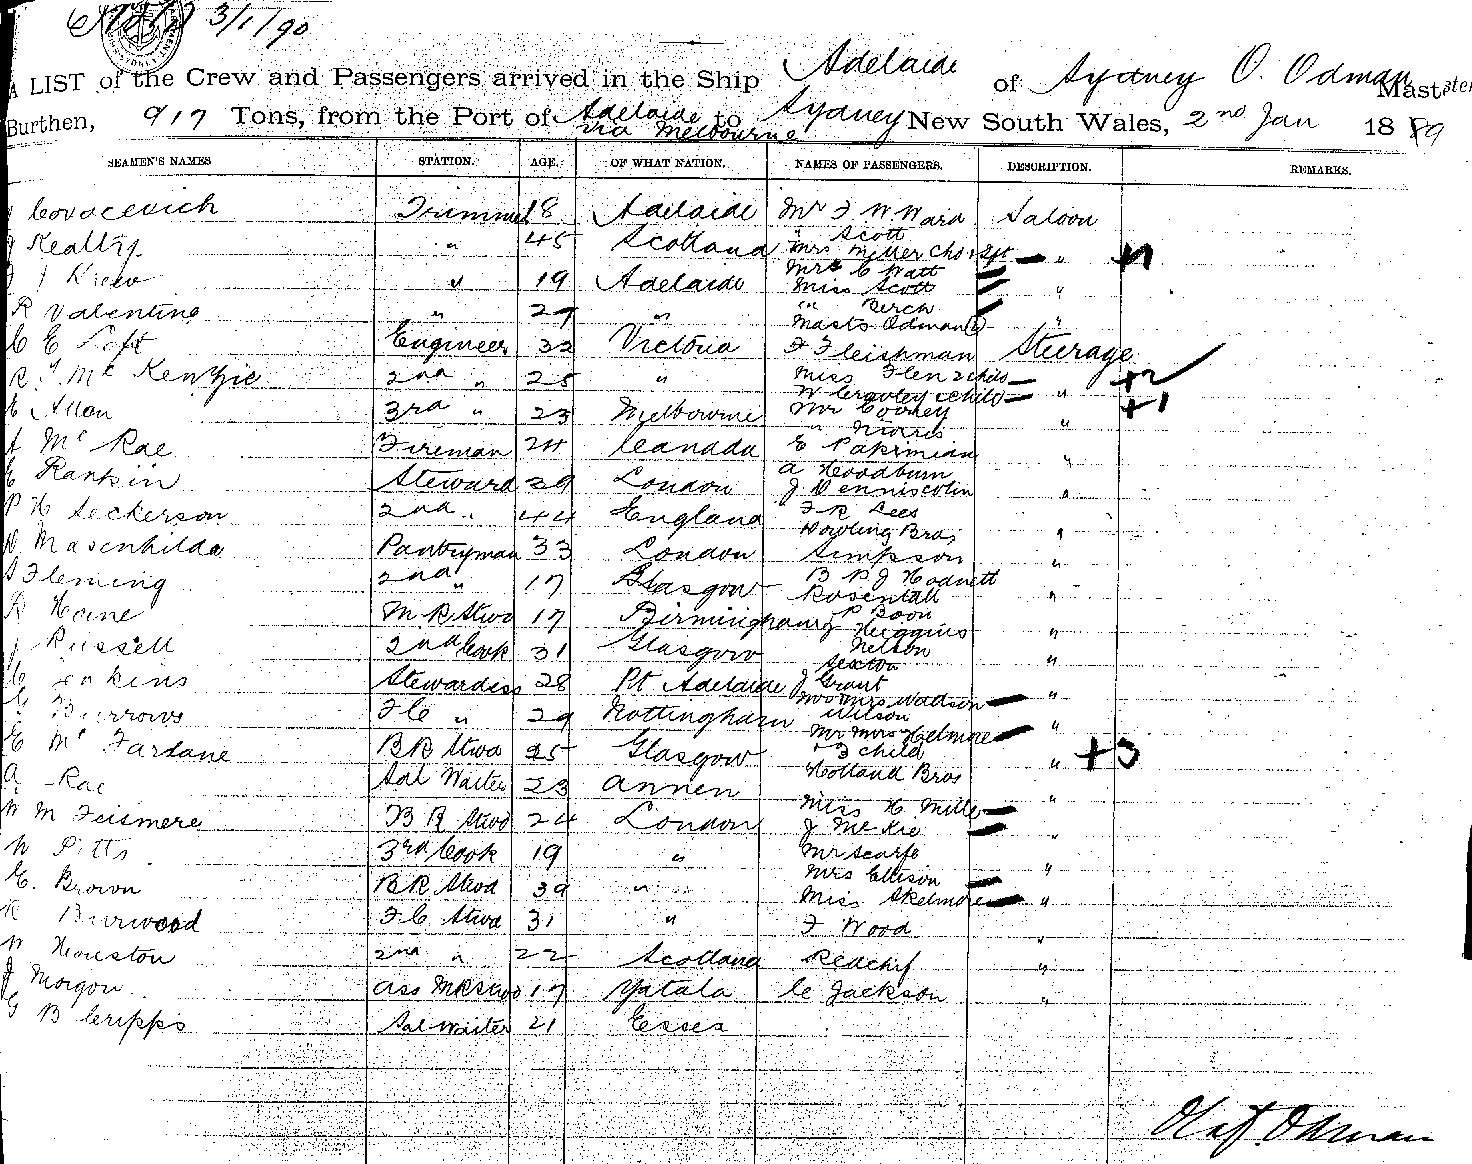 3/1/90
A LIST of the Crew and Passengers arrived in the Ship Adelaide of Sydney O. Odman Master
Burthen, 917 Tons, from the Port of Adelaide via Melbourne to Sydney New South Wales, 2nd Jan 1889
SEAMEN'S NAMES STATION. AGE. OF WHAT NATION. NAMES OF PASSENGERS. DESCRIPTION. REMARKS.
Covacevich Trimmer 18 Adelaide Mr F W Ward Saloon
" Scott
Kealty " 45 Scotland Mrs Miller Chd & Sft " +1
Mrs C Watt
19 Adelaide Miss Scott "
R Valentine " 27 " " Berch
Masts Odman (2) "
C E Loft Engineer 32 Victoria F Fleishman Steerage
R J McKenzie 2nd " 25 " Miss Flen 2 childs " +2
W Crowley & child +1
Allan 3rd " 23 Melbourne Mr Cooney "
" Norris
A McRae Fireman 24 Canada E Pakimian "
E Rankin Steward 29 London A Woodburn
J Denniscolin "
P H Seckerson 2nd " 44 England F R Lees
Dowling Bros "
Masenhilda Pantryman 33 London Simpson "
Fleming 2nd " 17 Glasgow B P J Hodnett
Rosentall "
R Heine M R Stwd 17 Birmingham P Boon
J Higgins "
J Russell 2nd Cook 31 Glasgow Nelson
Sexton "
Jenkins Stewardess 28 Pt Adelaide J Grant
Mr & Mrs Watson "
Burrows F C " 29 Nottingham Wilson
Mr Mrs Helmore "
E McFarlane B R Stwd 25 Glasgow & 3 child " +3
A Rae Sal Waiter 23 Annen Holland Bros "
W M Feismere B R Stwd 24 London Miss H Mills
J McKie "
W Pitts 3rd Cook 19 " Mr Scarfe
E. Brown B R Stwd 39 " Mrs Ellison "
Miss Skelmore "
R Burwood F C Stwd 31 " F Wood "
W Houston 2nd " 22 Scotland Redchif "
J Morgon Ass M R Stwd 17 Yatala C Jackson "
G B Cripps Sal Waiter 21 Essex
Olaf. Odman